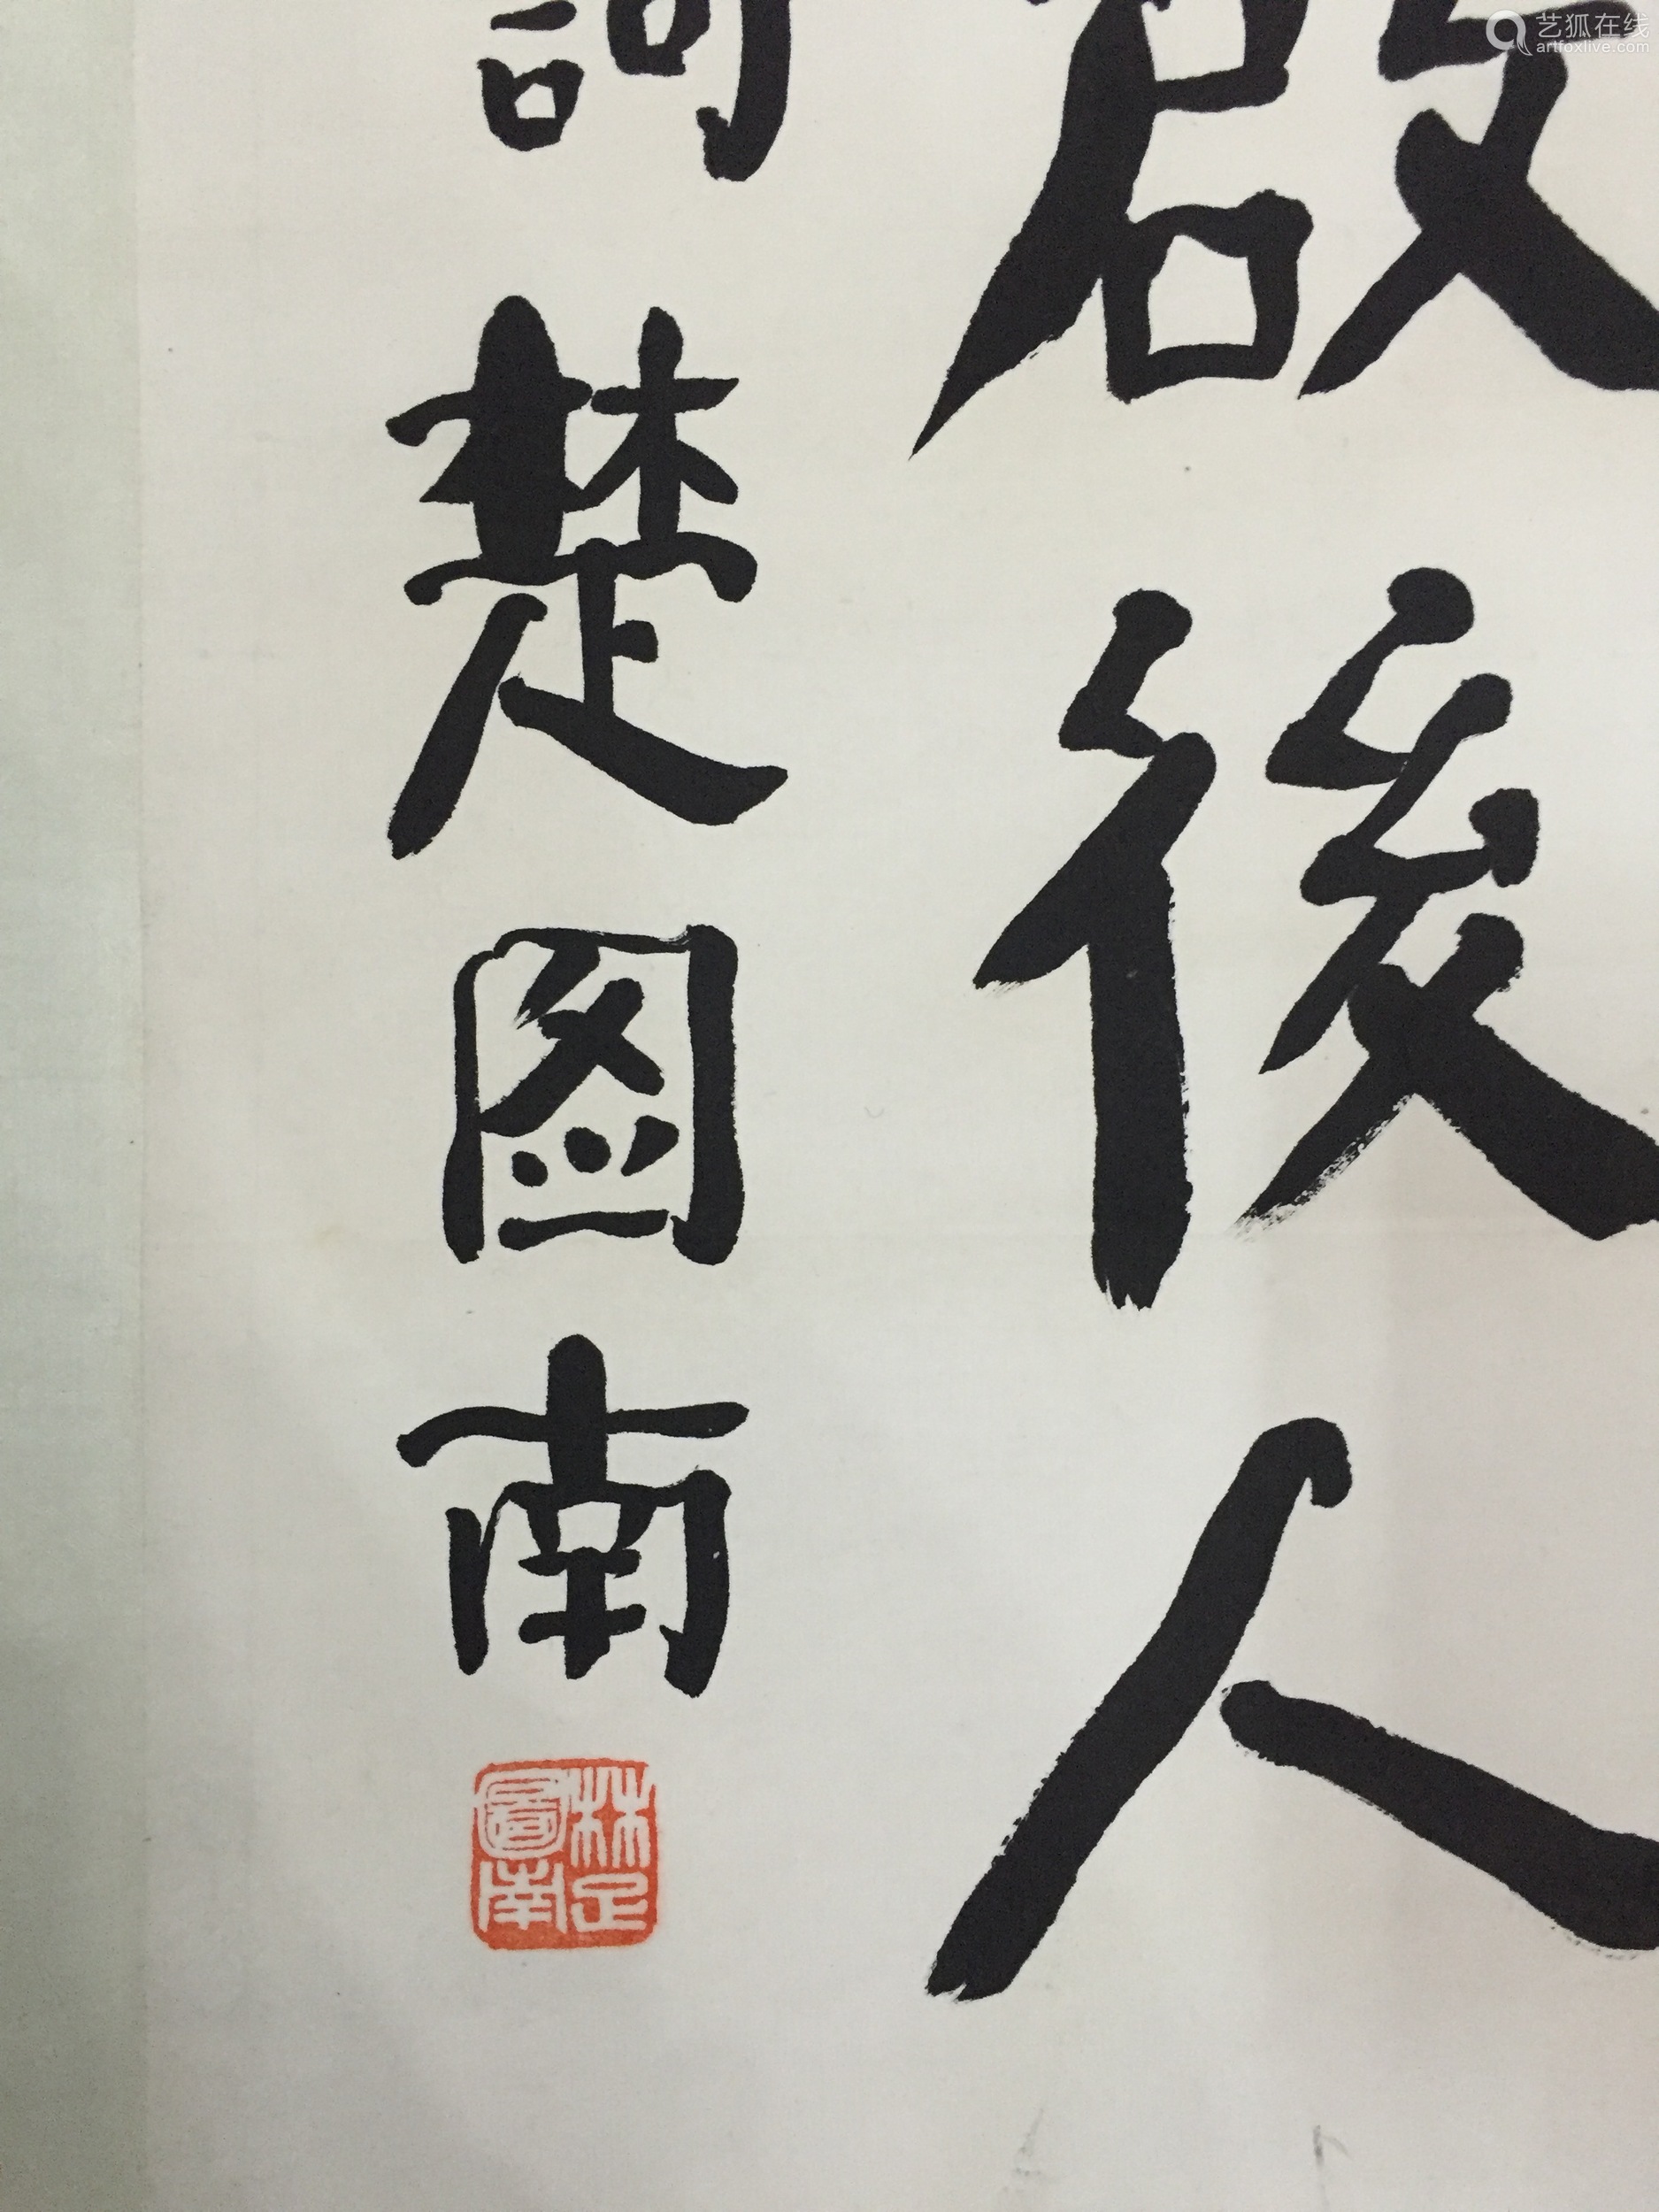 啟後人
詞楚图南
楚圖南
艺狐在线
artfoxlive.com